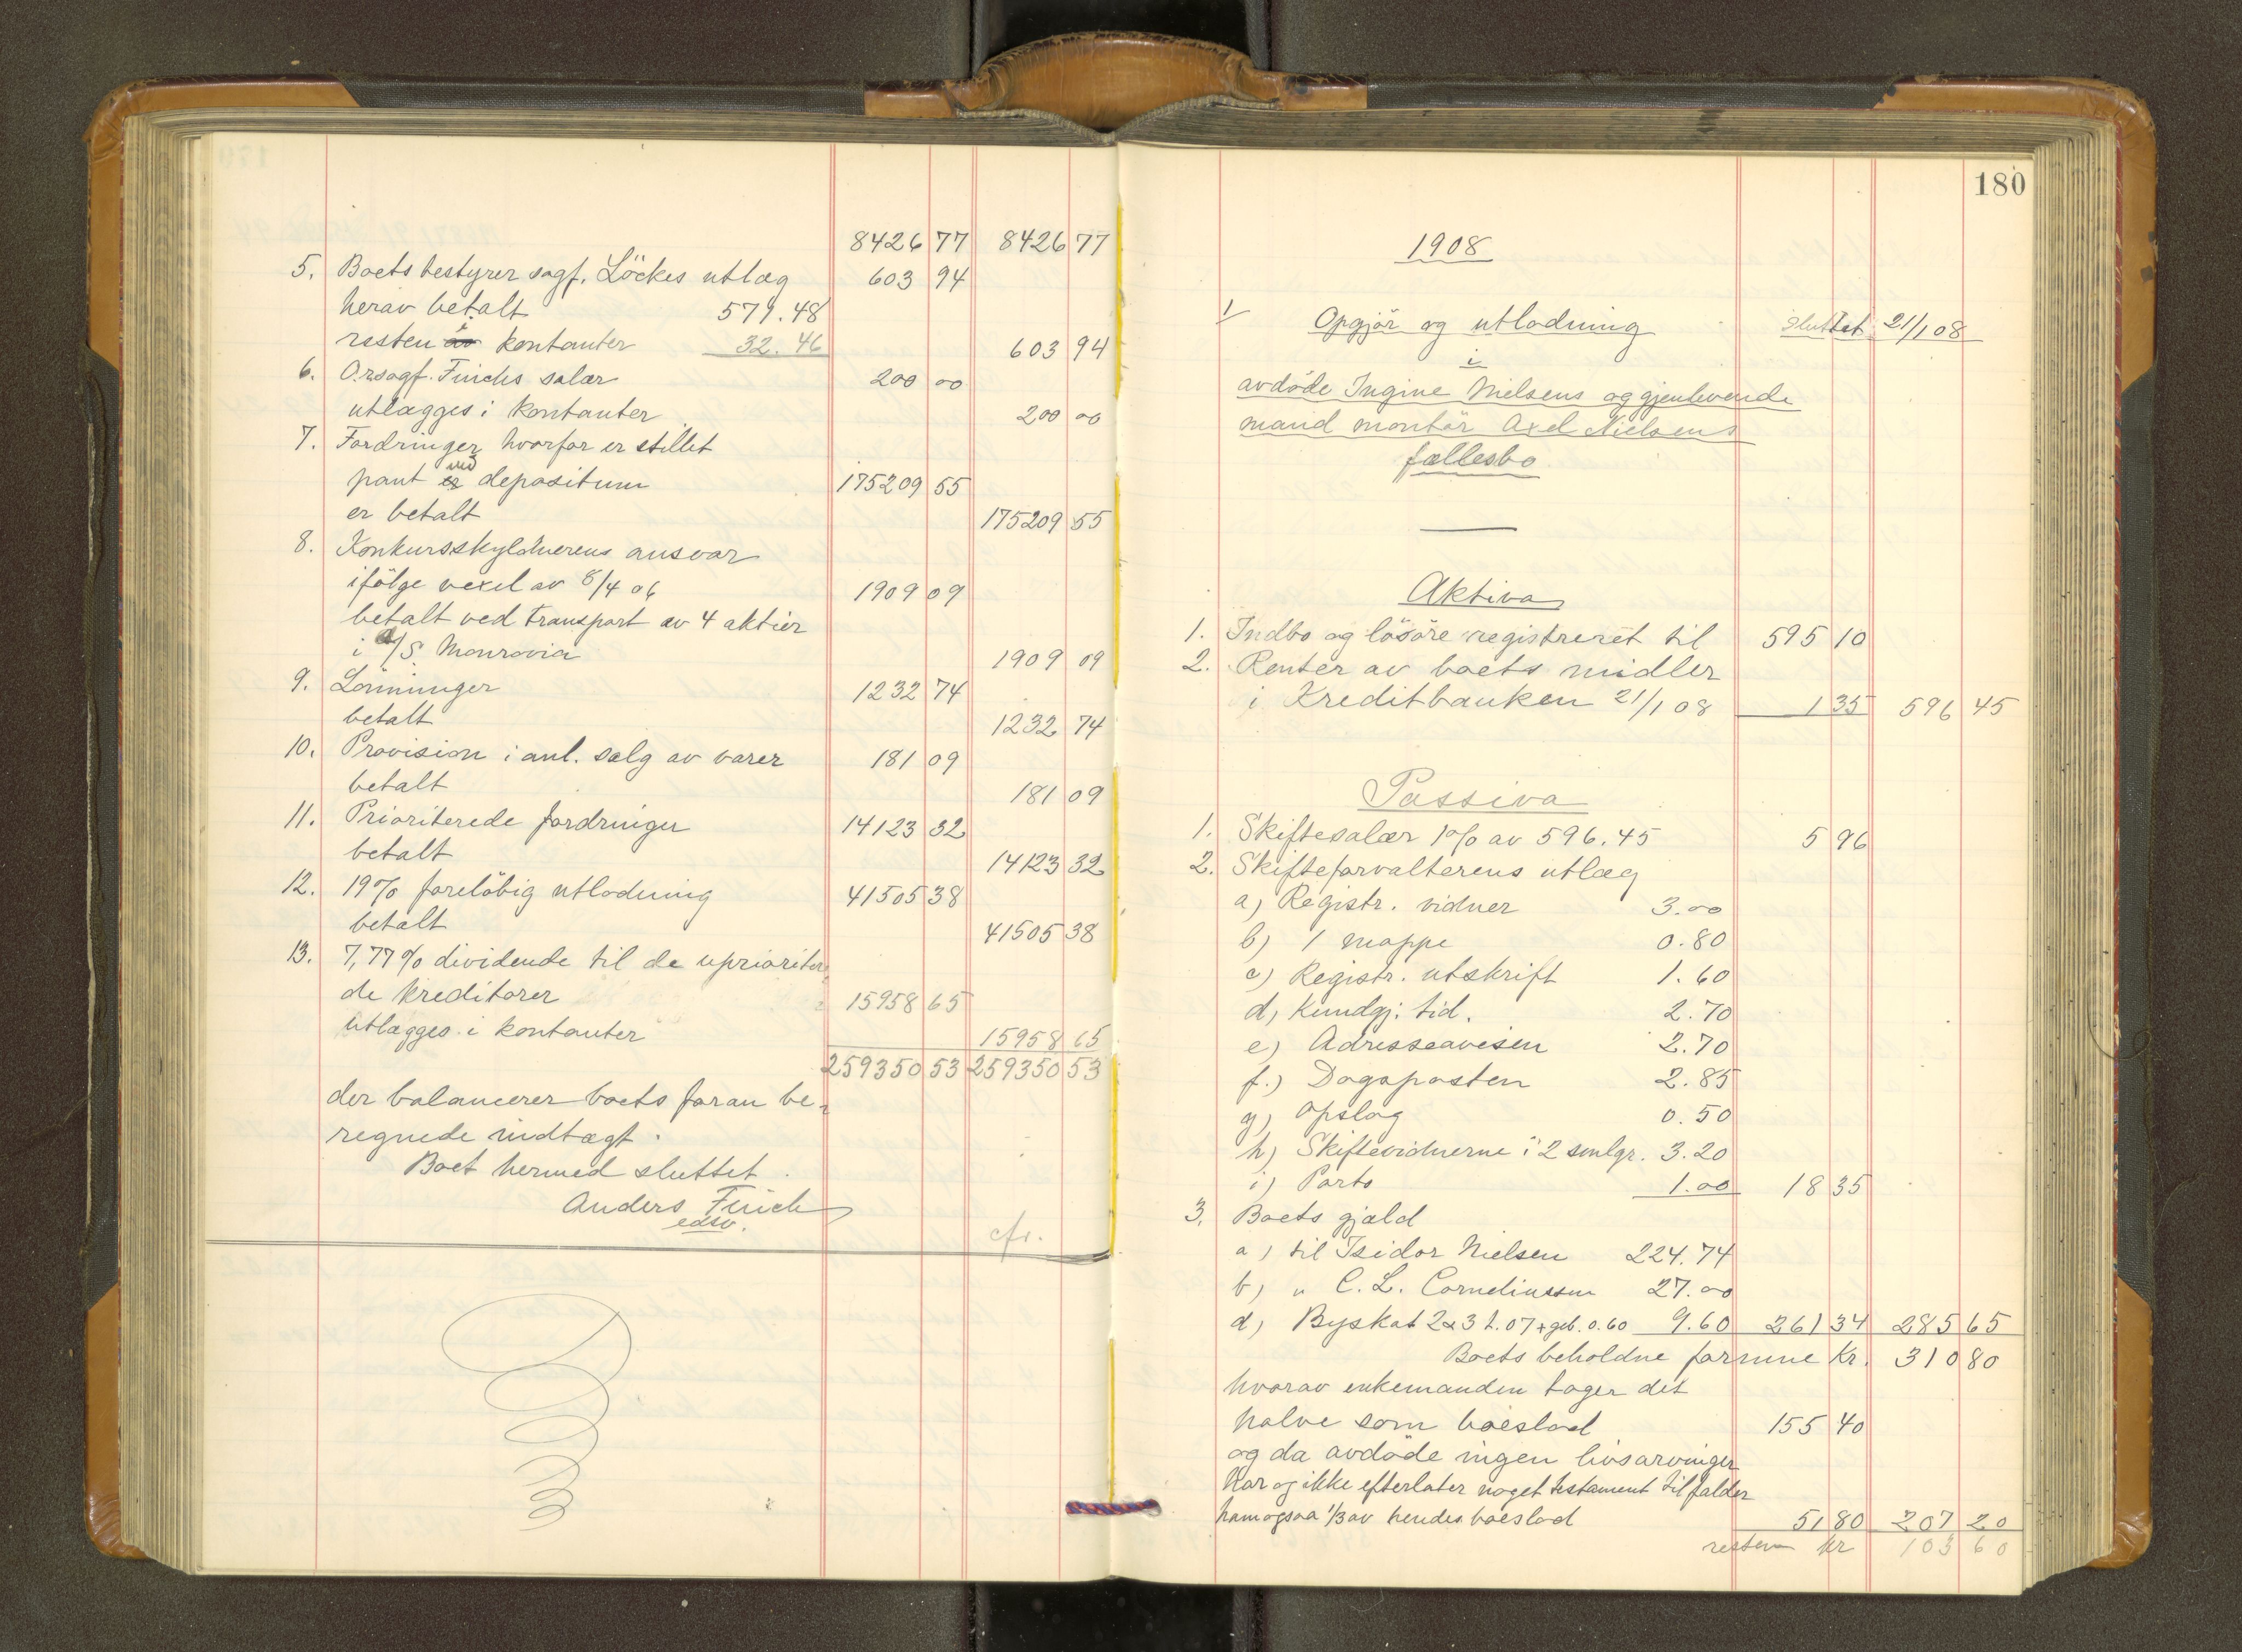 8426 77 8426 77
5. Boets bestyrer sagf. Löckes utlæg 603 94
herav betalt 571.48
resten i kontanter 32.46 603 94
6. O.rsagf. Finchs salær 200 00
utlægges i kontanter 200 00
7. Fordringer hvorfor er stillet
pant ved depositum 175209 55
er betalt 175209 55
8. Konkursskyldnerens ansvar
ifölge vexel av 8/4 06 1909 09
betalt ved transport av 4 aktier
i A/S. Monrovia 1909 09
9. Lönninger 1232 74
betalt 1232 74
10. Provision i anl. salg av varer 181 09
betalt 181 09
11. Prioriterede fordringer 14123 32
betalt 14123 32
12. 19% foreløbig utlodning 41505 38
betalt 41505 38
13. 7,77% dividende til de uprioriter
de kreditorer 15958 65
utlægges i kontanter 15958 65
259350 53 259350 53
der balancerer boets foran be-
regnede indtægt.
Boet hermed sluttet.
Anders Finch
edsv.
cfr.
180
1908
1/ Opgjör og utlodning sluttet 21/1 08
i
avdöde Ingine Nielsens og gjenlevende
mand montör Axel Nielsens
fællesbo
Aktiva
1. Indbo og lösöre registreret til 595 10
2. Renter av boets midler
i Kreditbanken 21/1 08 1 35 596 45
Passiva
1. Skiftesalær 1% av 596.45 5 96
2. Skifteforvalterens utlæg
a) Registr. vidner 3.00
b) 1 mappe 0.80
c) Registr. utskrift 1.60
d) Kundgj. tid. 2.70
e) Adresseavisen 2.70
f.) Dagsposten 2.85
g) Opslag 0.50
h) Skiftevidnerne i 2 smlgr. 3.20
i) Porto 1.00 18 35
3. Boets gjæld
a) til Isidor Nielsen 224.74
b) " C. L. Corneliussen 27.00
d) Byskat 2 & 3 t. 07 + geb. 0.60 9.60 261 34 285 65
Boets beholdne formue Kr. 310 80
hvorav enkemanden tager det
halve som boeslod 155 40
og da avdöde ingen livsarvinger
har og ikke efterlater noget testament tilfalder
ham ogsaa 1/3 av hendes boeslod 51 80 207 20
resten kr 103 60